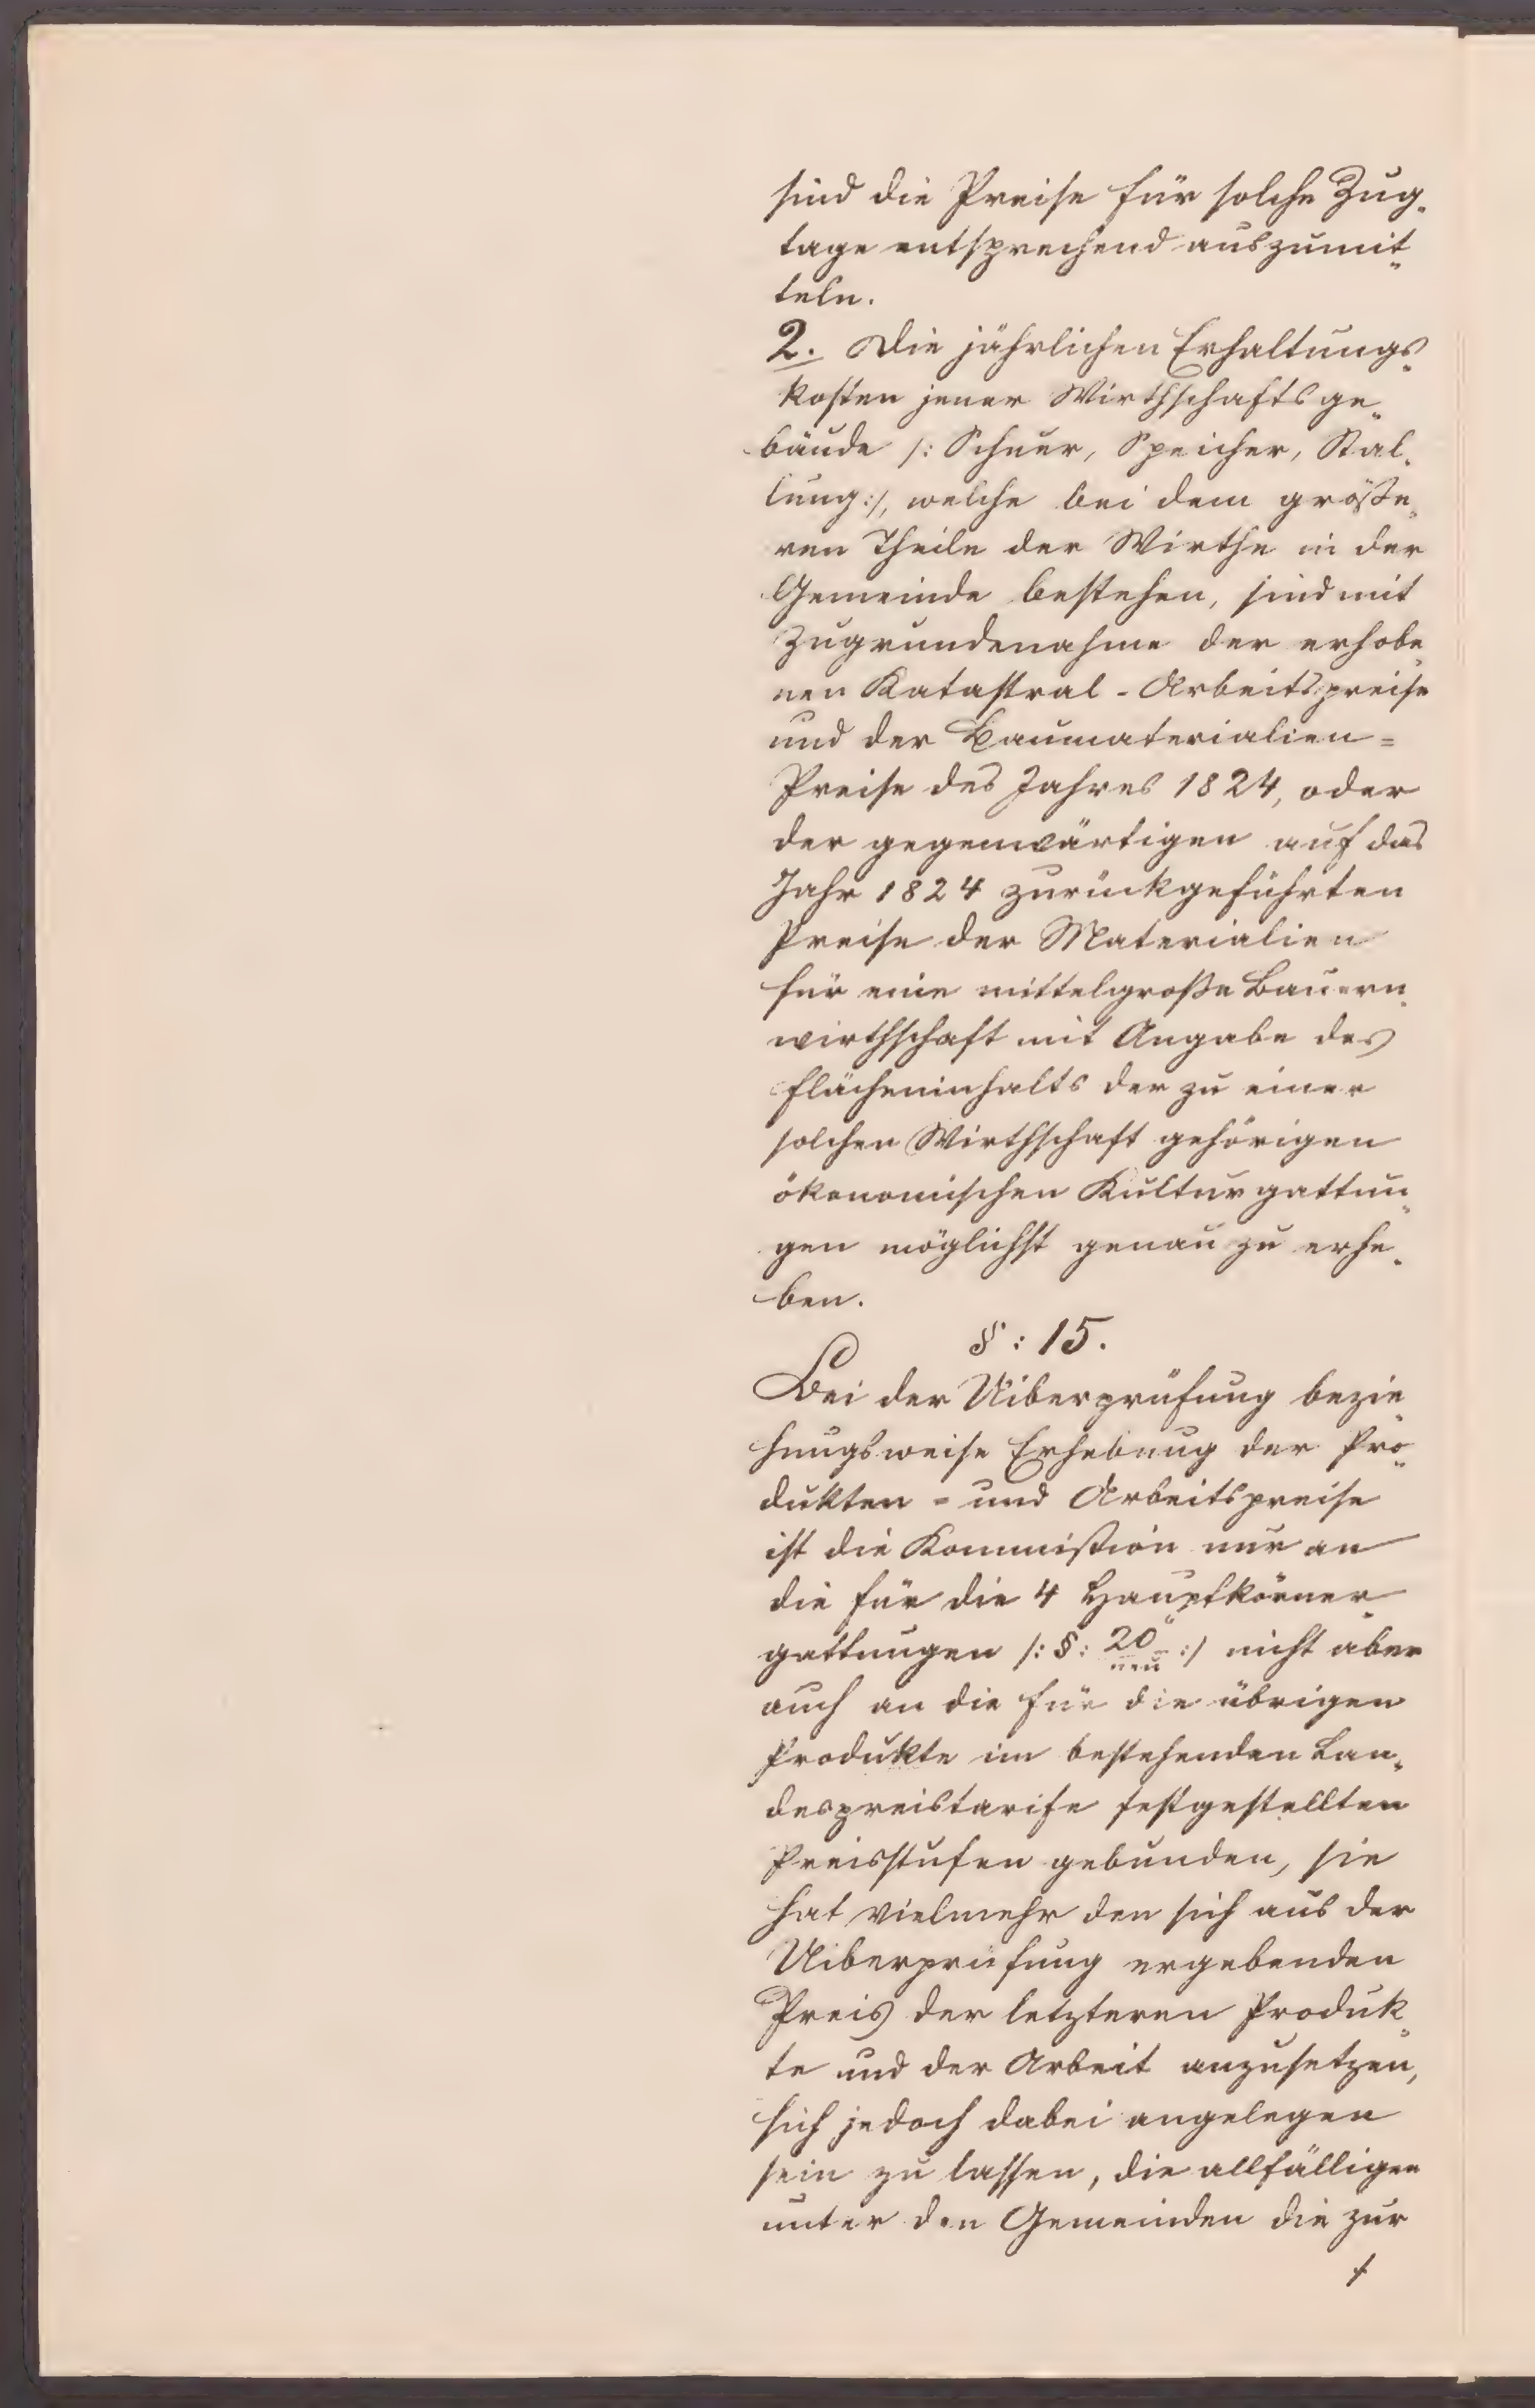 sind die Preise für solche Zug-
tage entsprechend auszumit-
teln.
2. Die jährlichen Erhaltungs-
kosten jener Wirthschaftsge-
bäude /: Scheuer, Speicher, Stal-
lung :/, welche bei dem größe-
ren Theile der Wirthe in der
Gemeinde bestehen, sind mit
Zugrundenahme der erhobe-
nen Katastral-Arbeitspreise
und der Baumaterialien=
Preise des Jahres 1824, oder
der gegenwärtigen auf das
Jahr 1824 zurückgeführten
Preise der Materialien
für eine mittelgroße Bauern-
wirthschaft mit Angabe des
Flächeninhalts der zu einer
solchen Wirthschaft gehörigen
ökonomischen Kulturgattun-
gen möglichst genau zu erhe-
ben.
§: 15.
Bei der Uiberprüfung bezie-
hungsweise Erhebung der Pro-
dukten= und Arbeitspreise
ist die Kommißion nur an
die für die 4 Hauptkörner-
gattungen /: §: 20 neu :/ nicht aber
auch an die für die übrigen
Produkte im bestehenden Lan-
despreistarife festgestellten
Preisstufen gebunden, sie
hat vielmehr den sich aus der
Uiberprüfung ergebenden
Preis der letzteren Produk-
te und der Arbeit anzusetzen,
sich jedoch dabei angelegen
sein zu lassen, die allfälligen
unter den Gemeinden die zur